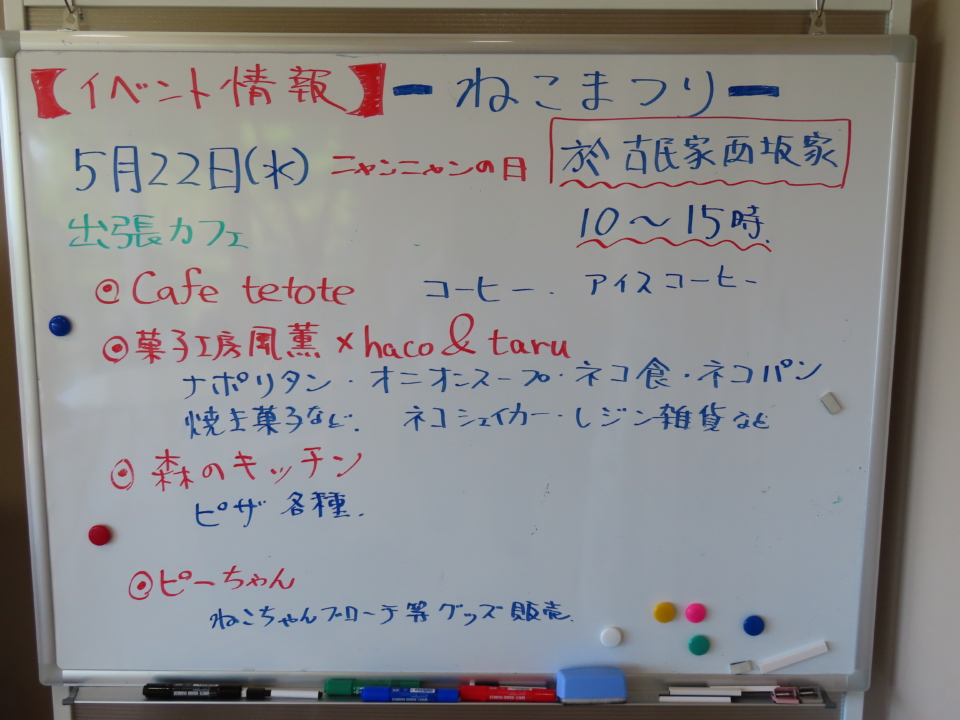 【イベント情報】ーねこまつりー
5月22日(水) ニャンニャンの日 於 古民家西坂家
出張カフェ 10～15時.
◎Cafe tetote コーヒー. アイスコーヒー
◎菓子工房風薫×haco&taru
ナポリタン・オニオンスープ・ネコ食・ネコパン
焼き菓子など. ネコシェイカー・レジン雑貨など
◎森のキッチン
ピザ各種.
◎ピーちゃん
ねこちゃんブローチ等グッズ販売.